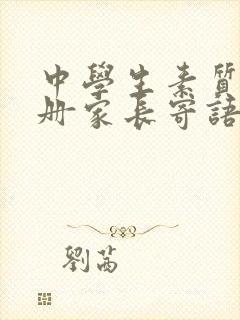 中學生素質
册家長寄語
劉茜